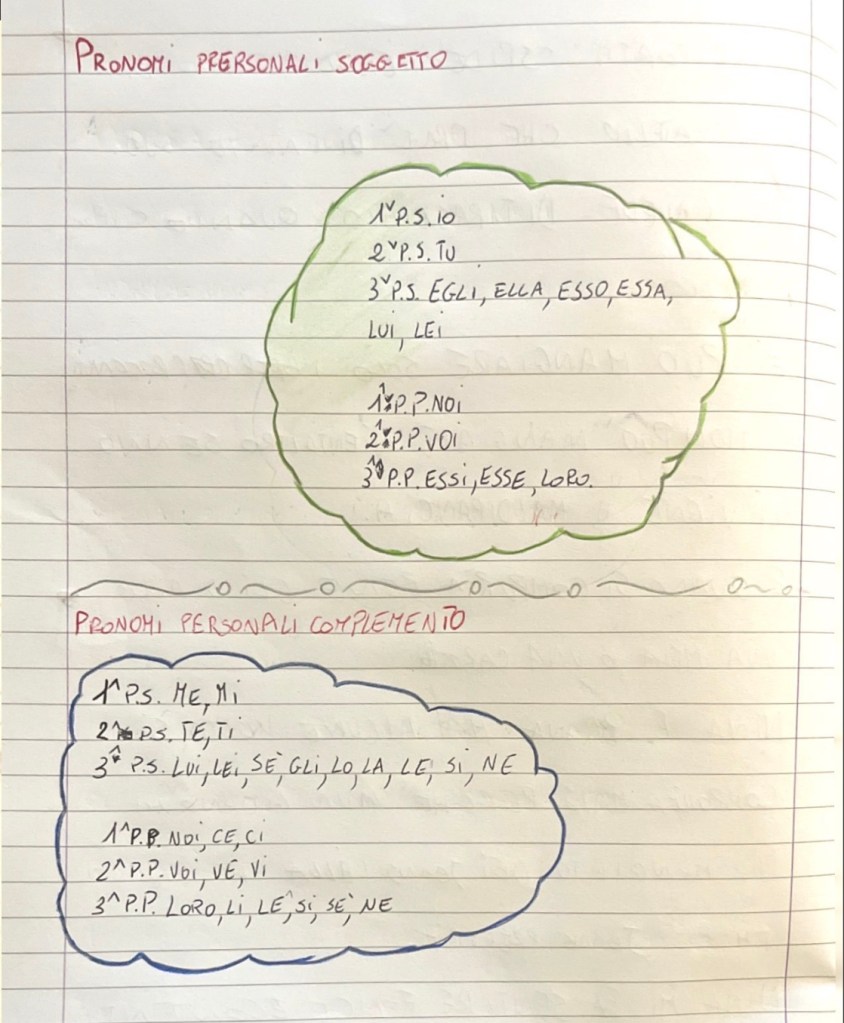 PRONOMI PPERSONALI SOGGETTO
1ˇP.S. IO
2ˇP.S. TU
3ˇP.S. EGLI, ELLA, ESSO, ESSA,
LUI, LEI
1^P.P. NOI
2^P.P. VOI
3^P.P. ESSI, ESSE, LORO.
PRONOMI PERSONALI COMPLEMENTO
1^ P.S. ME, MI
2^ P.S. TE, TI
3^ P.S. LUI, LEI, SÈ, GLI, LO, LA, LE, SI, NE
1^P.P. NOI, CE, CI
2^P.P. VOI, VE, VI
3^P.P. LORO, LI, LE, SI, SÈ, NE